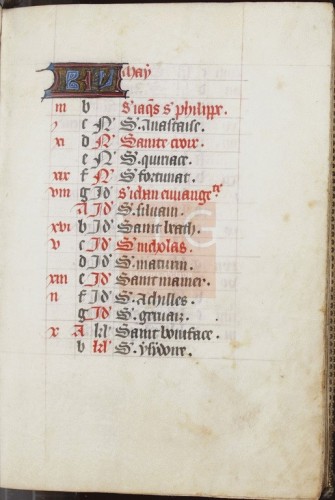 KL May
iii b S iaqs s philippe.
c N S. Anastaise.
xi d N Sainte croix.
e N S. quiriace.
xix f N S. fortunat.
viii g Id S iehan euuange
A Id S. siluain.
xvi b Id Saint beath.
v c Id S. nicholas.
d Id S. maturin.
xiii e Id Saint mamer.
ii f Id S. achilles.
g Id S. geruais.
x A kl Saint boniface.
b kl S. ysydore.